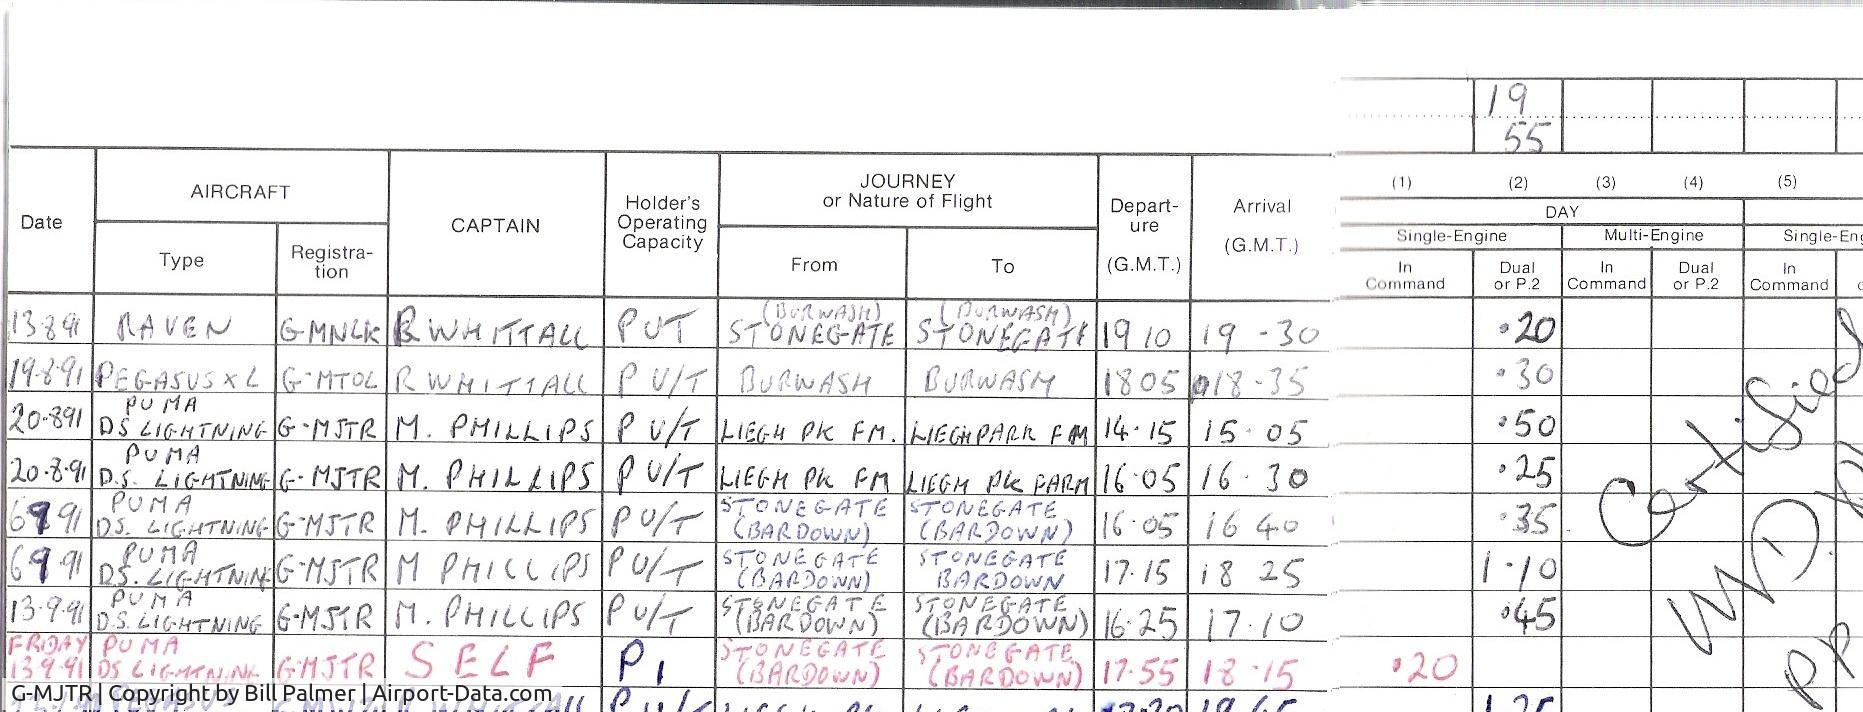 19
55
(1) (2) (3) (4) (5)
DAY
Single-Engine Multi-Engine Single-Eng
Date AIRCRAFT CAPTAIN Holder's Operating Capacity JOURNEY or Nature of Flight Depart-ure (G.M.T.) Arrival (G.M.T.)
Type Registra-tion From To In Command Dual or P.2 In Command Dual or P.2 In Command
13·8·91 RAVEN G-MNLK R WHITTALL PUT (BURWASH) STONEGATE (BURWASH) STONEGATE 19 10 19-30 ·20
19·8·91 PEGASUS XL G-MTOL R WHITTALL P U/T BURWASH BURWASH 18 05 18-35 ·30
20·8·91 PUMA DS LIGHTNING G-MJTR M. PHILLIPS P U/T LIEGH PK FM. LIEGH PARK FM 14·15 15·05 ·50
20·8·91 PUMA D.S. LIGHTNING G-MJTR M. PHILLIPS P U/T LIEGH PK FM LIEGH PK FARM 16·05 16·30 ·25
6 9 91 PUMA DS. LIGHTNING G-MJTR M. PHILLIPS P U/T STONEGATE (BARDOWN) STONEGATE (BARDOWN) 16·05 16 40 ·35
6 9·91 PUMA DS. LIGHTNING G-MJTR M PHILLIPS P U/T STONEGATE (BARDOWN) STONEGATE BARDOWN 17·15 18 25 1·10
13·9·91 PUMA D.S. LIGHTNING G-MJTR M. PHILLIPS P U/T STONEGATE (BARDOWN) STONEGATE (BARDOWN) 16·25 17·10 ·45
FRIDAY 13·9·91 PUMA DS LIGHTNING G-MJTR SELF P1 STONEGATE (BARDOWN) STONEGATE (BARDOWN) 17·55 18·15 ·20
Certified
G-MJTR | Copyright by Bill Palmer | Airport-Data.com